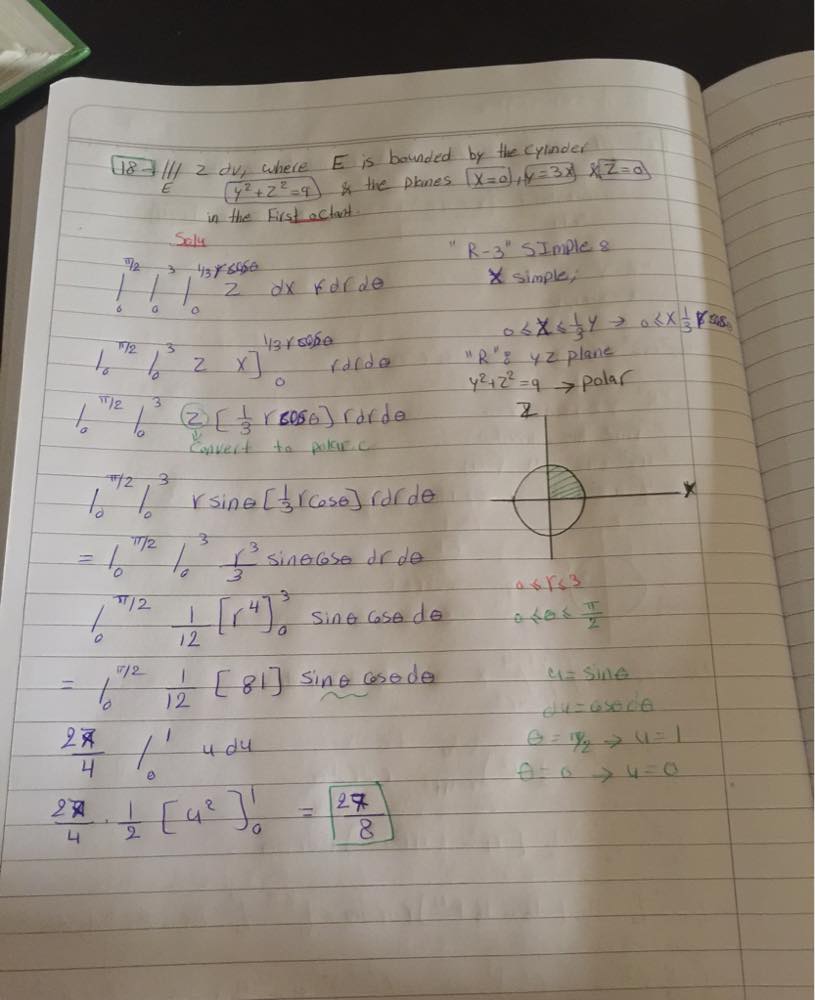 18→ ∭ z dv, where E is bounded by the cylinder
E
y²+z²=9 & the planes x=0, y=3x & z=0
in the First octant.
Solu
∫₀^π/2 ∫₀^3 ∫₀^1/3 r cosθ z dx r dr dθ
"R-3" SImple :
X simple;
0 ≤ x ≤ 1/3 y → 0 ≤ x 1/3 r cosθ
∫₀^π/2 ∫₀^3 z x]₀^1/3 r cosθ r dr dθ
"R" : yz plane
y²+z²=9 → polar
∫₀^π/2 ∫₀^3 z [1/3 r cosθ] r dr dθ
Convert to polar c
z
x
∫₀^π/2 ∫₀^3 r sinθ [1/3 r cosθ] r dr dθ
= ∫₀^π/2 ∫₀^3 r³/3 sinθ cosθ dr dθ
0 ≤ r ≤ 3
0 ≤ θ ≤ π/2
∫₀^π/2 1/12 [r⁴]₀^3 sinθ cosθ dθ
= ∫₀^π/2 1/12 [81] sinθ cosθ dθ
u = sinθ
du = cosθ dθ
θ = π/2 → u = 1
θ = 0 → u = 0
27/4 ∫₀^1 u du
27/4 · 1/2 [u²]₀^1 = 27/8